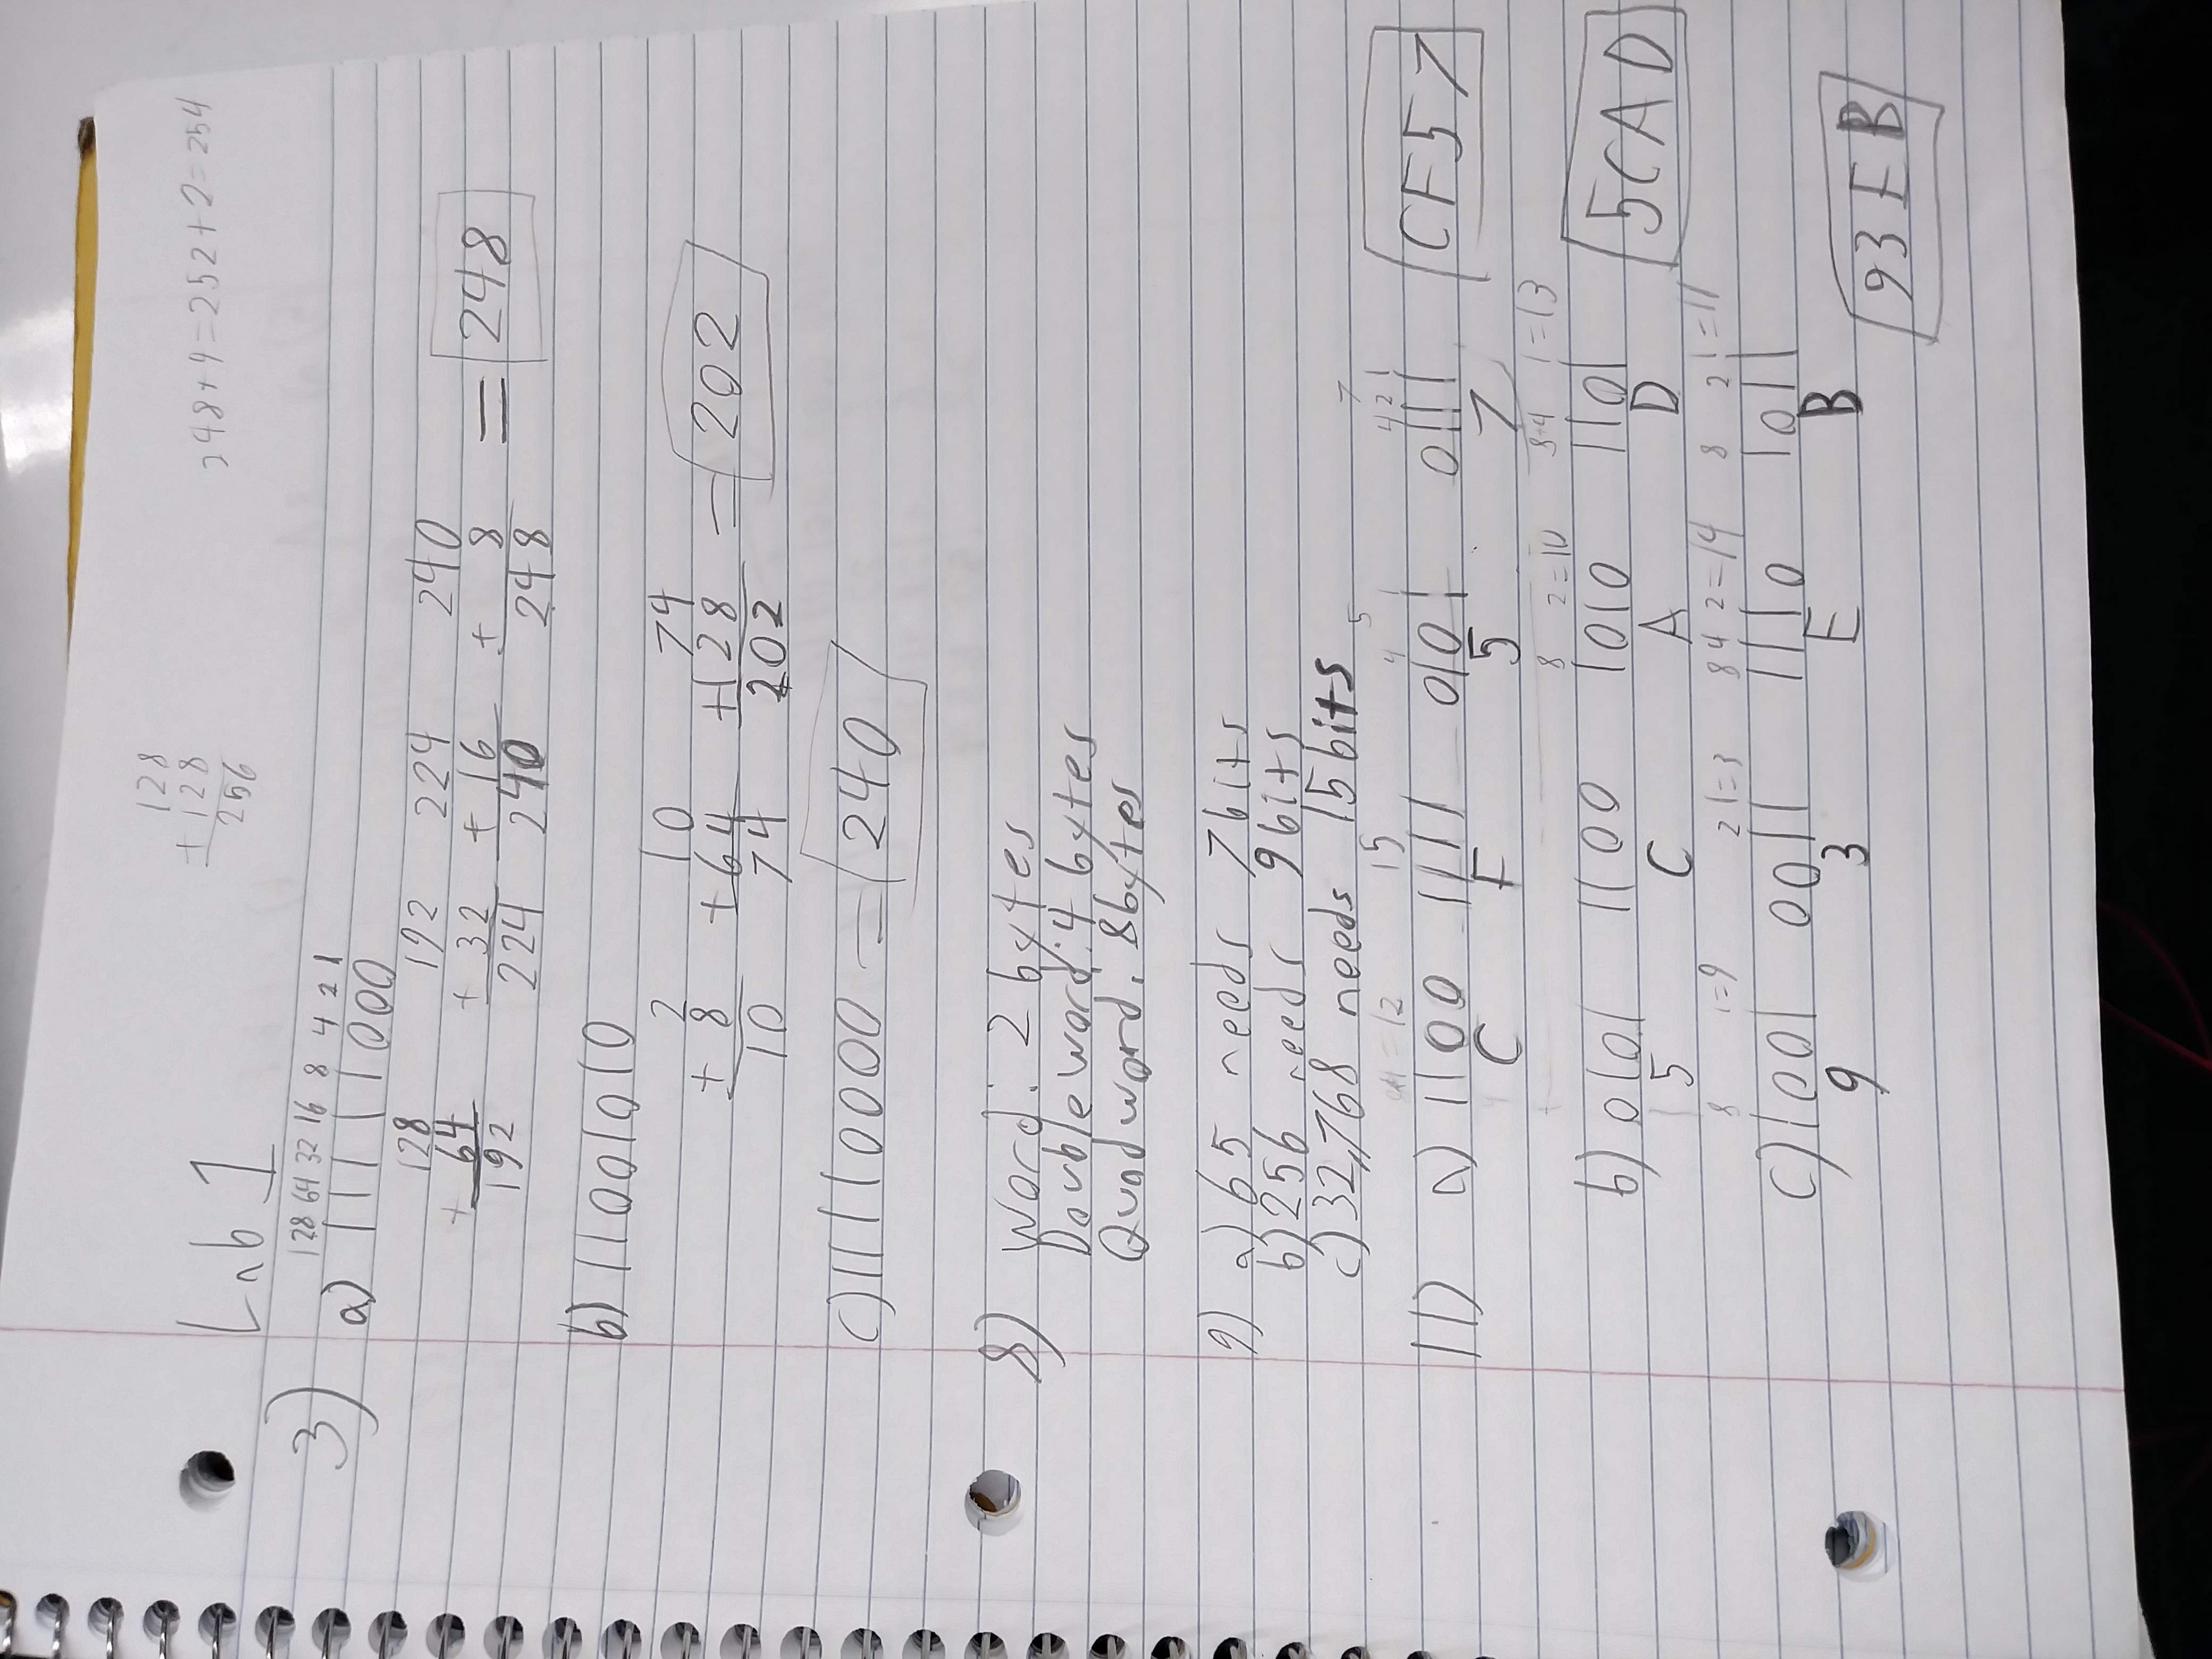 128
+ 128
256
248+4=252+2=254
Lab 1
3)
128 64 32 16 8 4 2 1
a) 11111000
128 192 224 240
+ 64 + 32 + 16 + 8 = 248
192 224 240 248
b) 11001010
2 10 74
+ 8 +64 +128 = 202
10 74 202
c) 11110000 = 240
8) Word: 2 bytes
Doubleword: 4 bytes
Quadword: 8bytes
9) a) 65 needs 7bits
b) 256 needs 9bits
c) 32,768 needs 15bits
= 12 15 4 5 1 4 2 1 7
11) a) 1100 1111 0101 0111 CF57
C F 5 7
8 2=10 8 4 1=13
b) 0101 1100 1010 1101 5CAD
5 C A D
8 1=9 2 1=3 8 4 2=14 8 2 1=11
c) 1001 0011 1110 1011
9 3 E B
93EB